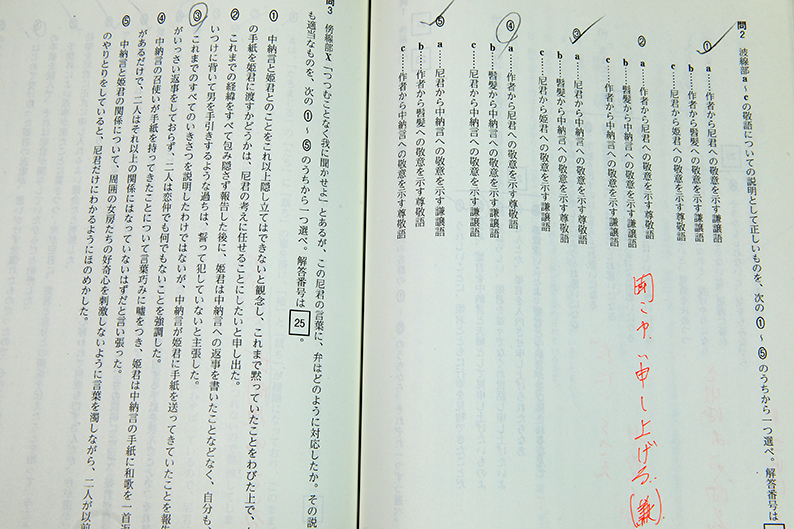 問2 波線部a～cの敬語についての説明として正しいものを、次の①～⑤のうちから一つ選べ。解答番号は
① a……作者から尼君への敬意を示す謙譲語
b……作者から髫髪への敬意を示す尊敬語
c……尼君から姫君への敬意を示す謙譲語
② a……作者から尼君への敬意を示す尊敬語
b……髫髪から中納言への敬意を示す尊敬語
c……作者から中納言への敬意を示す謙譲語
③ a……尼君から中納言への敬意を示す謙譲語
b……髫髪から中納言への敬意を示す尊敬語
c……尼君から姫君への敬意を示す謙譲語
④ a……作者から尼君への敬意を示す尊敬語
b……髫髪から中納言への敬意を示す謙譲語
c……尼君から中納言への敬意を示す謙譲語
⑤ a……尼君から中納言への敬意を示す尊敬語
b……作者から髫髪への敬意を示す尊敬語
c……作者から中納言への敬意を示す謙譲語
申し上げる
問3 傍線部X「つつむことなく我に聞かせよ」とあるが、この尼君の言葉に、弁はどのように対応したか。その説
も適当なものを、次の①～⑤のうちから一つ選べ。解答番号は 25 。
① 中納言と姫君とのことをこれ以上隠し立てはできないと観念し、これまで黙っていたことをわびた上で、
の手紙を姫君に渡すかどうかは、尼君の考えに任せることにしたいと申し出た。
② これまでの経緯をすべて包み隠さず報告した後に、姫君は中納言への返事を書いたことなどなく、自分も、
いつけに背いて男を手引きするような過ちは、誓って犯していないと主張した。
③ これまでのすべてのいきさつを説明したわけではないが、中納言が姫君に手紙を送ってきていたことを報告
がいっさい返事をしておらず、二人は恋仲でも何でもないことを強調した。
④ 中納言の召使いが手紙を持ってきたことについて言葉巧みに嘘をつき、姫君は中納言の手紙に和歌を一首返
があるだけで、二人はそれ以上の関係にはなっていないはずだと言い張った。
⑤ 中納言と姫君の関係について、周囲の女房たちの好奇心を刺激しないように言葉を濁しながら、二人が以前
のやりとりをしていると、尼君だけにわかるようにほのめかした。